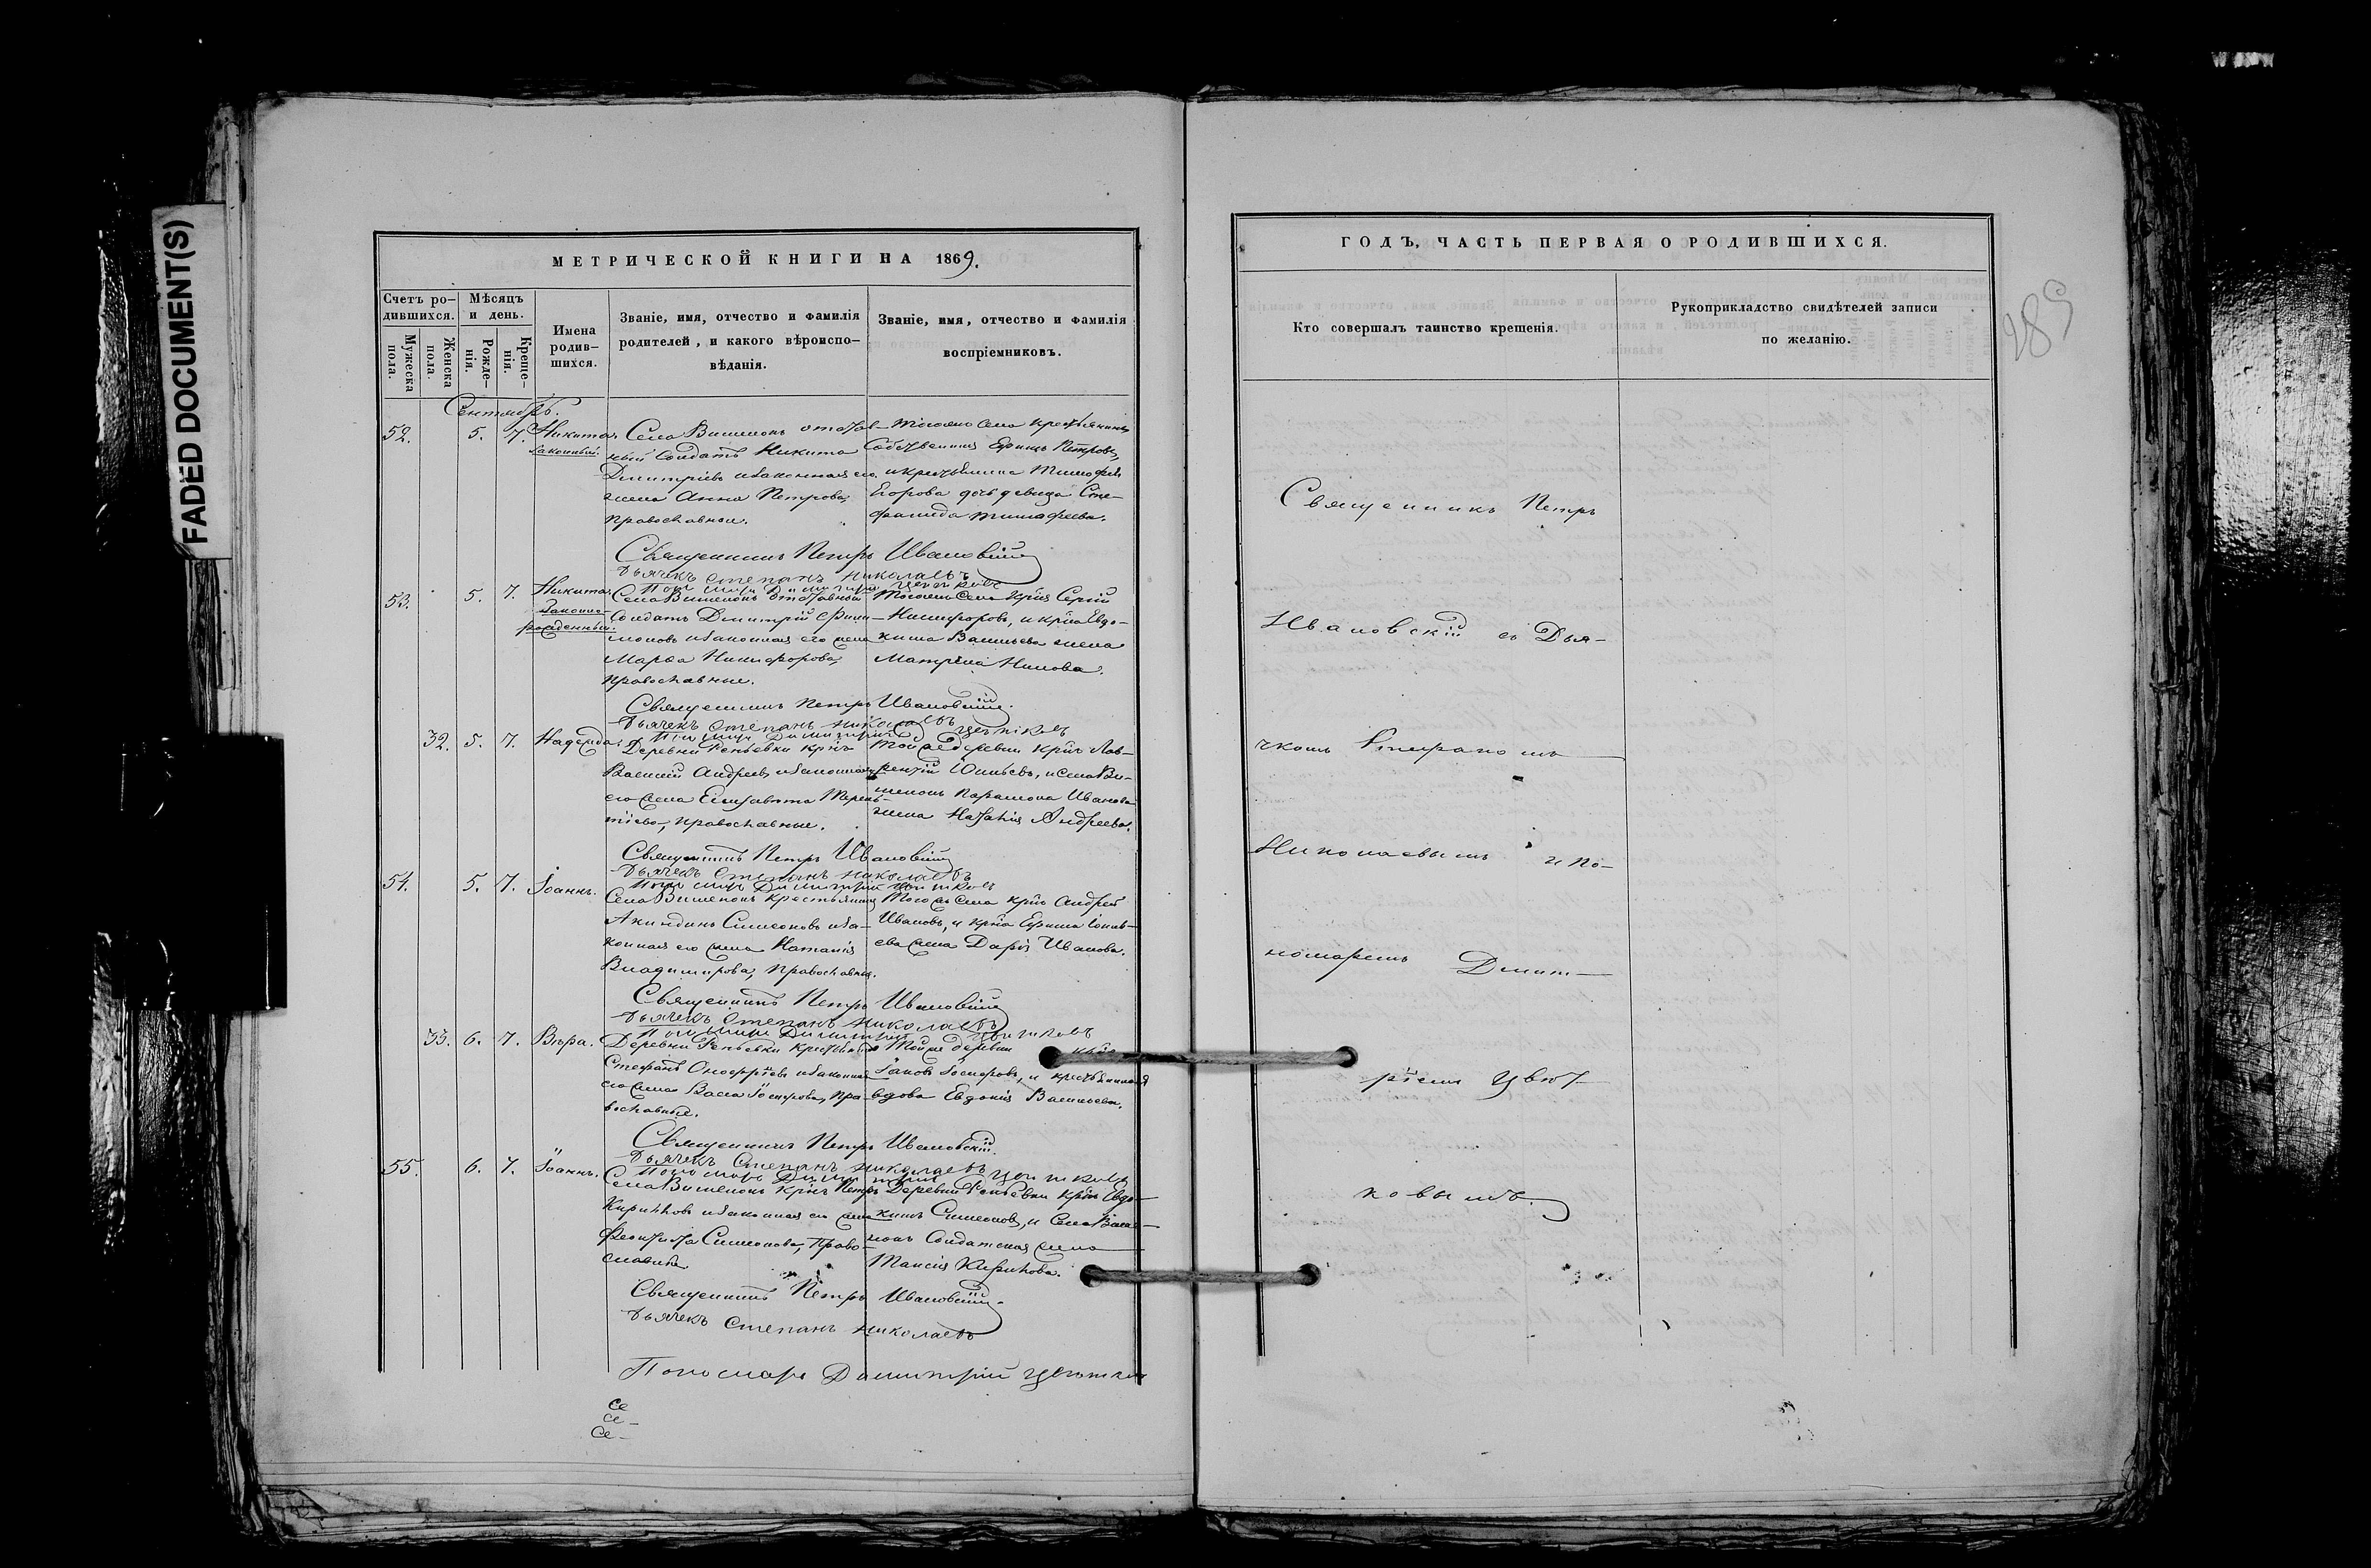 FADED DOCUMENT(S)
МЕТРИЧЕСКОЙ КНИГИ НА 1869.
Счетъ ро-
дившихся.
Мѣсяцъ
и день.
Мужеска
пола.
Женска
пола.
Рожде-
нія.
Креще-
нія.
Имена
родив-
шихся.
Званіе, имя, отчество и фамилія
родителей, и какого вѣроиспо-
вѣданія.
Званіе, имя, отчество и фамилія
воспріемниковъ.
Сентябрь.
52. 5. 7. Никита
законный.
Села Вишенокъ отстав-
ный Солдатъ Никита
Дмитріевъ и законная его
жена Анна Петрова,
православные.
Тогоже села крестьянинъ
Собственникъ Петровъ,
и крестьянина Тимофея
Егорова дочь девица Сте-
фанида Тимофеева.
Священникъ Петръ Ивановскій
Дьячекъ Степанъ Николаевъ
53. 5. 7. Никита
законно-
рожденный.
Села Вишенокъ отставной
Солдатъ Дмитрій
и законная его жена
Марѳа Никифорова,
православные.
Тогоже села Сергій
Никифоровъ, и Евдо-
кима Васильева жена
Матрена
Священникъ Петръ Ивановскій.
Дьячекъ Степанъ Николаевъ
32. 5. 7. Надежда.
Деревни Репьевки
Василій Андреевъ и законная
его жена Елисавета Терень-
тіева, православные.
Тойже деревни Лав-
рентій и села Ви-
шенокъ Иванова
жена Наталія Андреева.
Священникъ Петръ Ивановскій
Дьячекъ Степанъ Николаевъ
54. 5. 7. Іоаннъ.
Села Вишенокъ крестьянинъ
Акиндинъ Симеоновъ и за-
конная его жена Наталія
Владимирова, православные.
Тогожъ села Андрей
Ивановъ, и
жена Дарія Иванова.
Священникъ Петръ Ивановскій
Дьячекъ Степанъ Николаевъ
33. 6. 7. Вѣра.
Деревни Репьевки
Стефанъ Онофріевъ и законная
его жена Васса пра-
вославные.
Тойже деревни
Іаковъ
вдова Евдокія Васильева.
Священникъ Петръ Ивановскій.
Дьячекъ Степанъ Николаевъ
55. 6. 7. Іоаннъ.
Села Вишенокъ Петръ
Кириловъ и законная его жена
Симеонова, право-
славные
Деревни Репьевки Евдо-
кимъ Симеоновъ, и села Више-
нокъ Солдатская жена
Таисія Кирилова.
Священникъ Петръ Ивановскій.
Дьячекъ Степанъ Николаевъ
Пономарь Димитрій Цветков
Се
Се-
Се-
ГОДЪ, ЧАСТЬ ПЕРВАЯ О РОДИВШИХСЯ.
Кто совершалъ таинство крещенія.
Рукоприкладство свидѣтелей записи
по желанію.
289
Священникъ Петръ
Ивановскій съ Дья-
чкомъ Стефаномъ
Николаевымъ и по-
номаремъ Дмит-
ріемъ Цвѣт-
ковымъ.